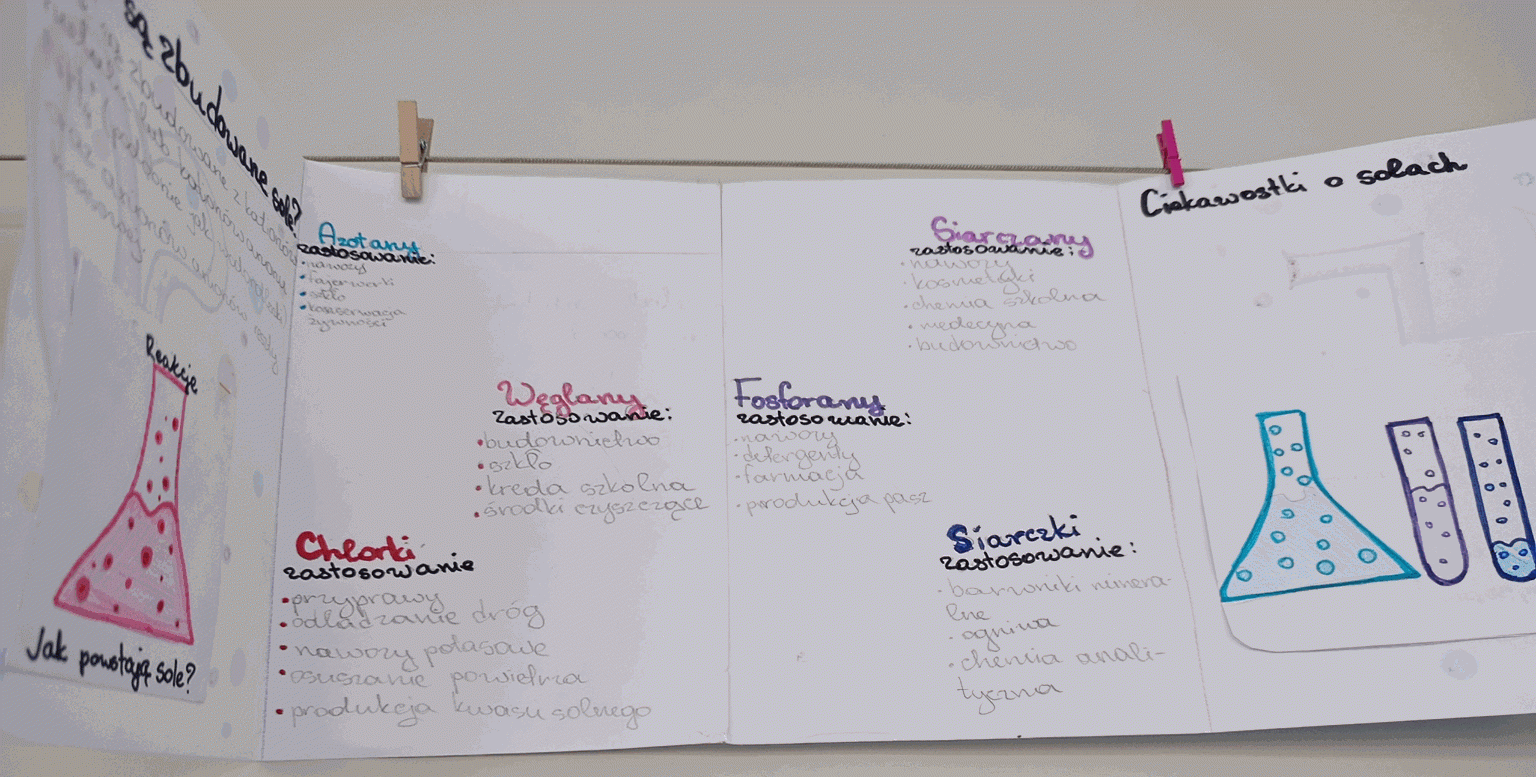 są zbudowane sole?
Reakcje
Jak powstają sole?
Azotany
zastosowanie:
• nawozy
• fajerwerki
• szkło
• konserwacja
żywności
Węglany
zastosowanie:
• budownictwo
• szkło
• kreda szkolna
• środki czyszczące
Chlorki
zastosowanie
• przyprawy
• odladzanie dróg
• nawozy potasowe
• osuszanie powietrza
• produkcja kwasu solnego
Siarczany
zastosowanie:
• nawozy
• kosmetyki
• chemia szkolna
• medecyna
• budownictwo
Fosforany
zastosowanie:
• nawozy
• detergenty
• farmacja
• produkcja pasz
Siarczki
zastosowanie:
• barwniki minera-
lne
• ogniwa
• chemia anali-
tyczna
Ciekawostki o solach